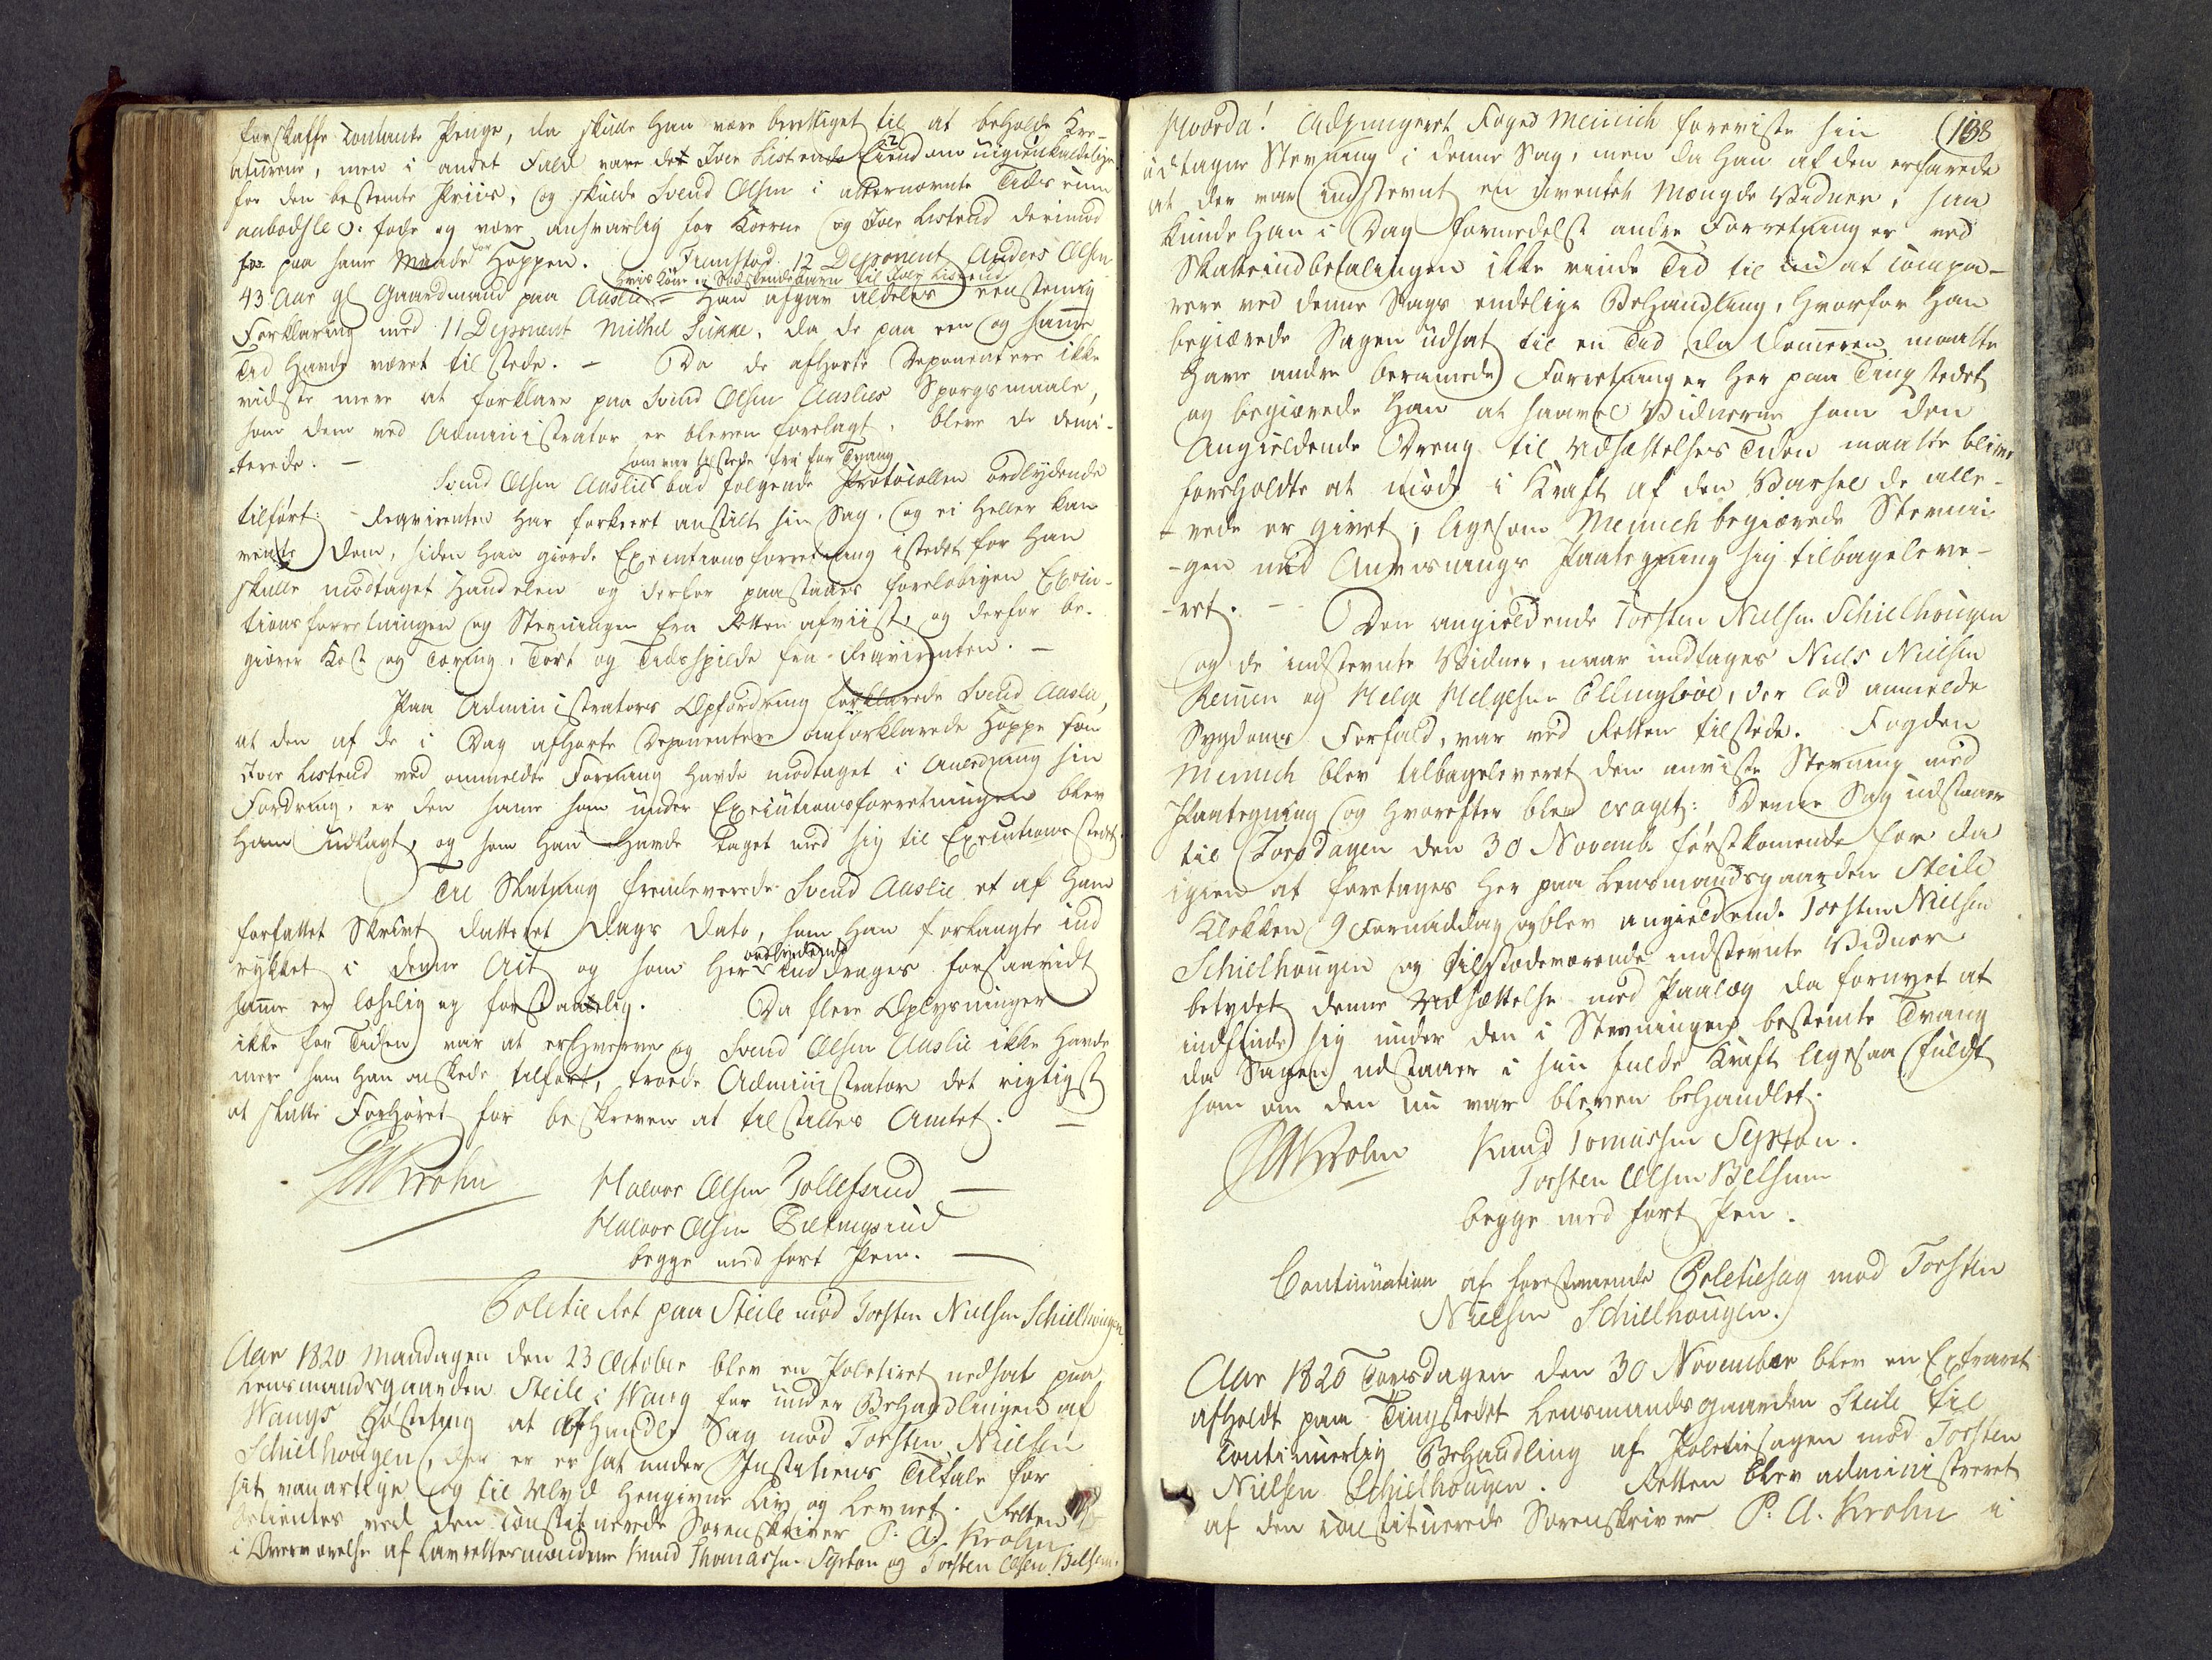 forskaffe Contante Penge, da skulle han være berettiget til at beholde Kre-
aturene, men i andet Fald vare det Iver Listends Eiendom uigienkaldelige
for den bestemte Priis, og skulde Svend Olsen i alternævnte Tids rum
aabodslev. føde og være ansvarlig for Koerne og Iver Listend derimod
for paa samme Maade for Hoppen. Fremstod 12 Deponent Anders Olsen
hvis Kone er Sødskendebarn til Iver Listend
43 Aar gl Gaardmand paa Aaslie. Han afgav aldeles eenstemig
Forklaring med 11 Deponent Mikkel, da de paa een og samme
Tid havde været tilstede. - Da de afhørte Deponentere ikke
vidste mere at forklare paa Svend Olsen Aaslies Spørgsmaale,
som dem ved Administrator er bleven forelagt, bleve de demi-
terede. -
som var tilstede fri for Tvang
Svend Olsen Aaslie bad følgende Protocollen ordlydende
tilført: Reqvirenten har forkeert anstilt sin Sag, og ei heller kan
vente Dom, siden han giorde Executionsforretning istedet for han
skulle modtaget Handelen og derfor paastaaes foreløbigen Execu-
tionsforretningen og Stevningen fra Retten afviist, og derfor be-
giærer Kost og Tæring, Tort og Tidsspilde fra Reqvirenten. -
Paa Administrators Opfordring forklarede Svend Aaslie,
at den af de i Dag afhørte Deponentere omforklarede Hoppe som
Iver Listend ved ommeldte Forening havde modtaget i Anledning sin
Fordring, er den samme som under Executionsforretningen blev
ham udlagt, og som han havde taget med sig til Executionsstedet.
Til Slutning fremleverede Svend Aaslie et af ham
forfattet Skrivt datteret Dags Dato, som han forlangte ind
rykket i denne Act og som her ordlydende inddrages forsaavidt
samme er læselig og forstaaelig. Da flere Oplysninger
ikke for Tiden var at erhverve og Svend Olsen Aaslie ikke havde
mere som han ønskede tilført, troede Administrator det rigtigst
at slutte Forhøret for beskreven at tilstilles Amtet. -
PAKrohn Halvor Olsen Tollefsrud -
Halvor Olsen
begge med ført Pen. -
Poletie Ret paa Steile mod Torsten Nielsen Schielhougen
Aar 1820 Mandagen den 23 October blev en Poletieret nedsat paa
Lensmandsgaarden Steile i Wang for under Behandlingen af
Wangs Høsteting at afhandle Sag mod Torsten Nielsen
Schielhougen, der er er sat under Justitiens Tiltale for
sit vanartige og til Ulyd hengivne Liv og Levnet. Retten
betientes ved den constituerede Sorenskriver P. A. Krohn
i Overværelse af Lavrettesmændene Knud Thomassen Syxton og Torsten Olsen Belsem.
138
Hvorda! Adjungeret Foged Meinich foreviste sin
udtagne Stevning i denne Sag, men da han af den erfarede
at der var indstevnt en uventet Mængde Vidner, saa
kunde han i Dag formedelst andre Forretninger ved
Skatteindbetalingen ikke vinde Tid til at compa-
rere ved denne Sags endelige Behandling, hvorfor han
begiærede Sagen udsat til en Tid, da Dommeren maatte
have andre beramede Forretninger her paa Tingstedet
og begiærede han at saavel Vidnerne som den
Angieldende Dreng til Udsættelses Tiden maatte blive
foreholdte at møde i Kraft af den Varsel de alle-
rede er givet; ligesom Meinich begiærede Stevnin-
gen med Anviisnings Paategning sig tilbageleve-
ret. - Den angieldende Torsten Nielsen Schielhougen
og de indstevnte Vidner, naar undtages Niels Nielsen
Remen og Helge Helgesen Ellingbøe, der lod anmelde
Sygdoms Forfald, var ved Retten tilstede. Fogden
Meinich blev tilbageleveret den anviiste Stevning med
Paategning og hvorefter blev eraget: Denne Sag udstaaer
til Torsdagen den 30 Novemb. førstkomende for da
igien at foretages her paa Lensmandsgaarden Steile
Klokken 9 Formiddag og blev angieldende Torsten Nielsen
Schielhougen og tilstedeværende indstevnte Vidner
betydet denne Udsættelse med Paalæg da fornyet at
indfinde sig under den i Stevningen bestemte Tvang
da Sagen udstaaer i sin fulde Kraft ligesaa fuldt
som om den nu var bleven behandlet.
PAKrohn Knud Tomassen Syxton.
Torsten Olsen Belsem
begge med ført Pen.
Continuation af forestaaende Poletiesag mod Torsten
Nielsen Schielhougen.
Aar 1820 Torsdagen den 30 November blev en Extraret
afholdt paa Tingstedet Lensmandsgaarden Steile til
Continuerlig Behandling af Poletiesagen mod Torsten
Nielsen Schielhougen. Retten blev administreret
af den constituerede Sorenskriver P. A. Krohn i